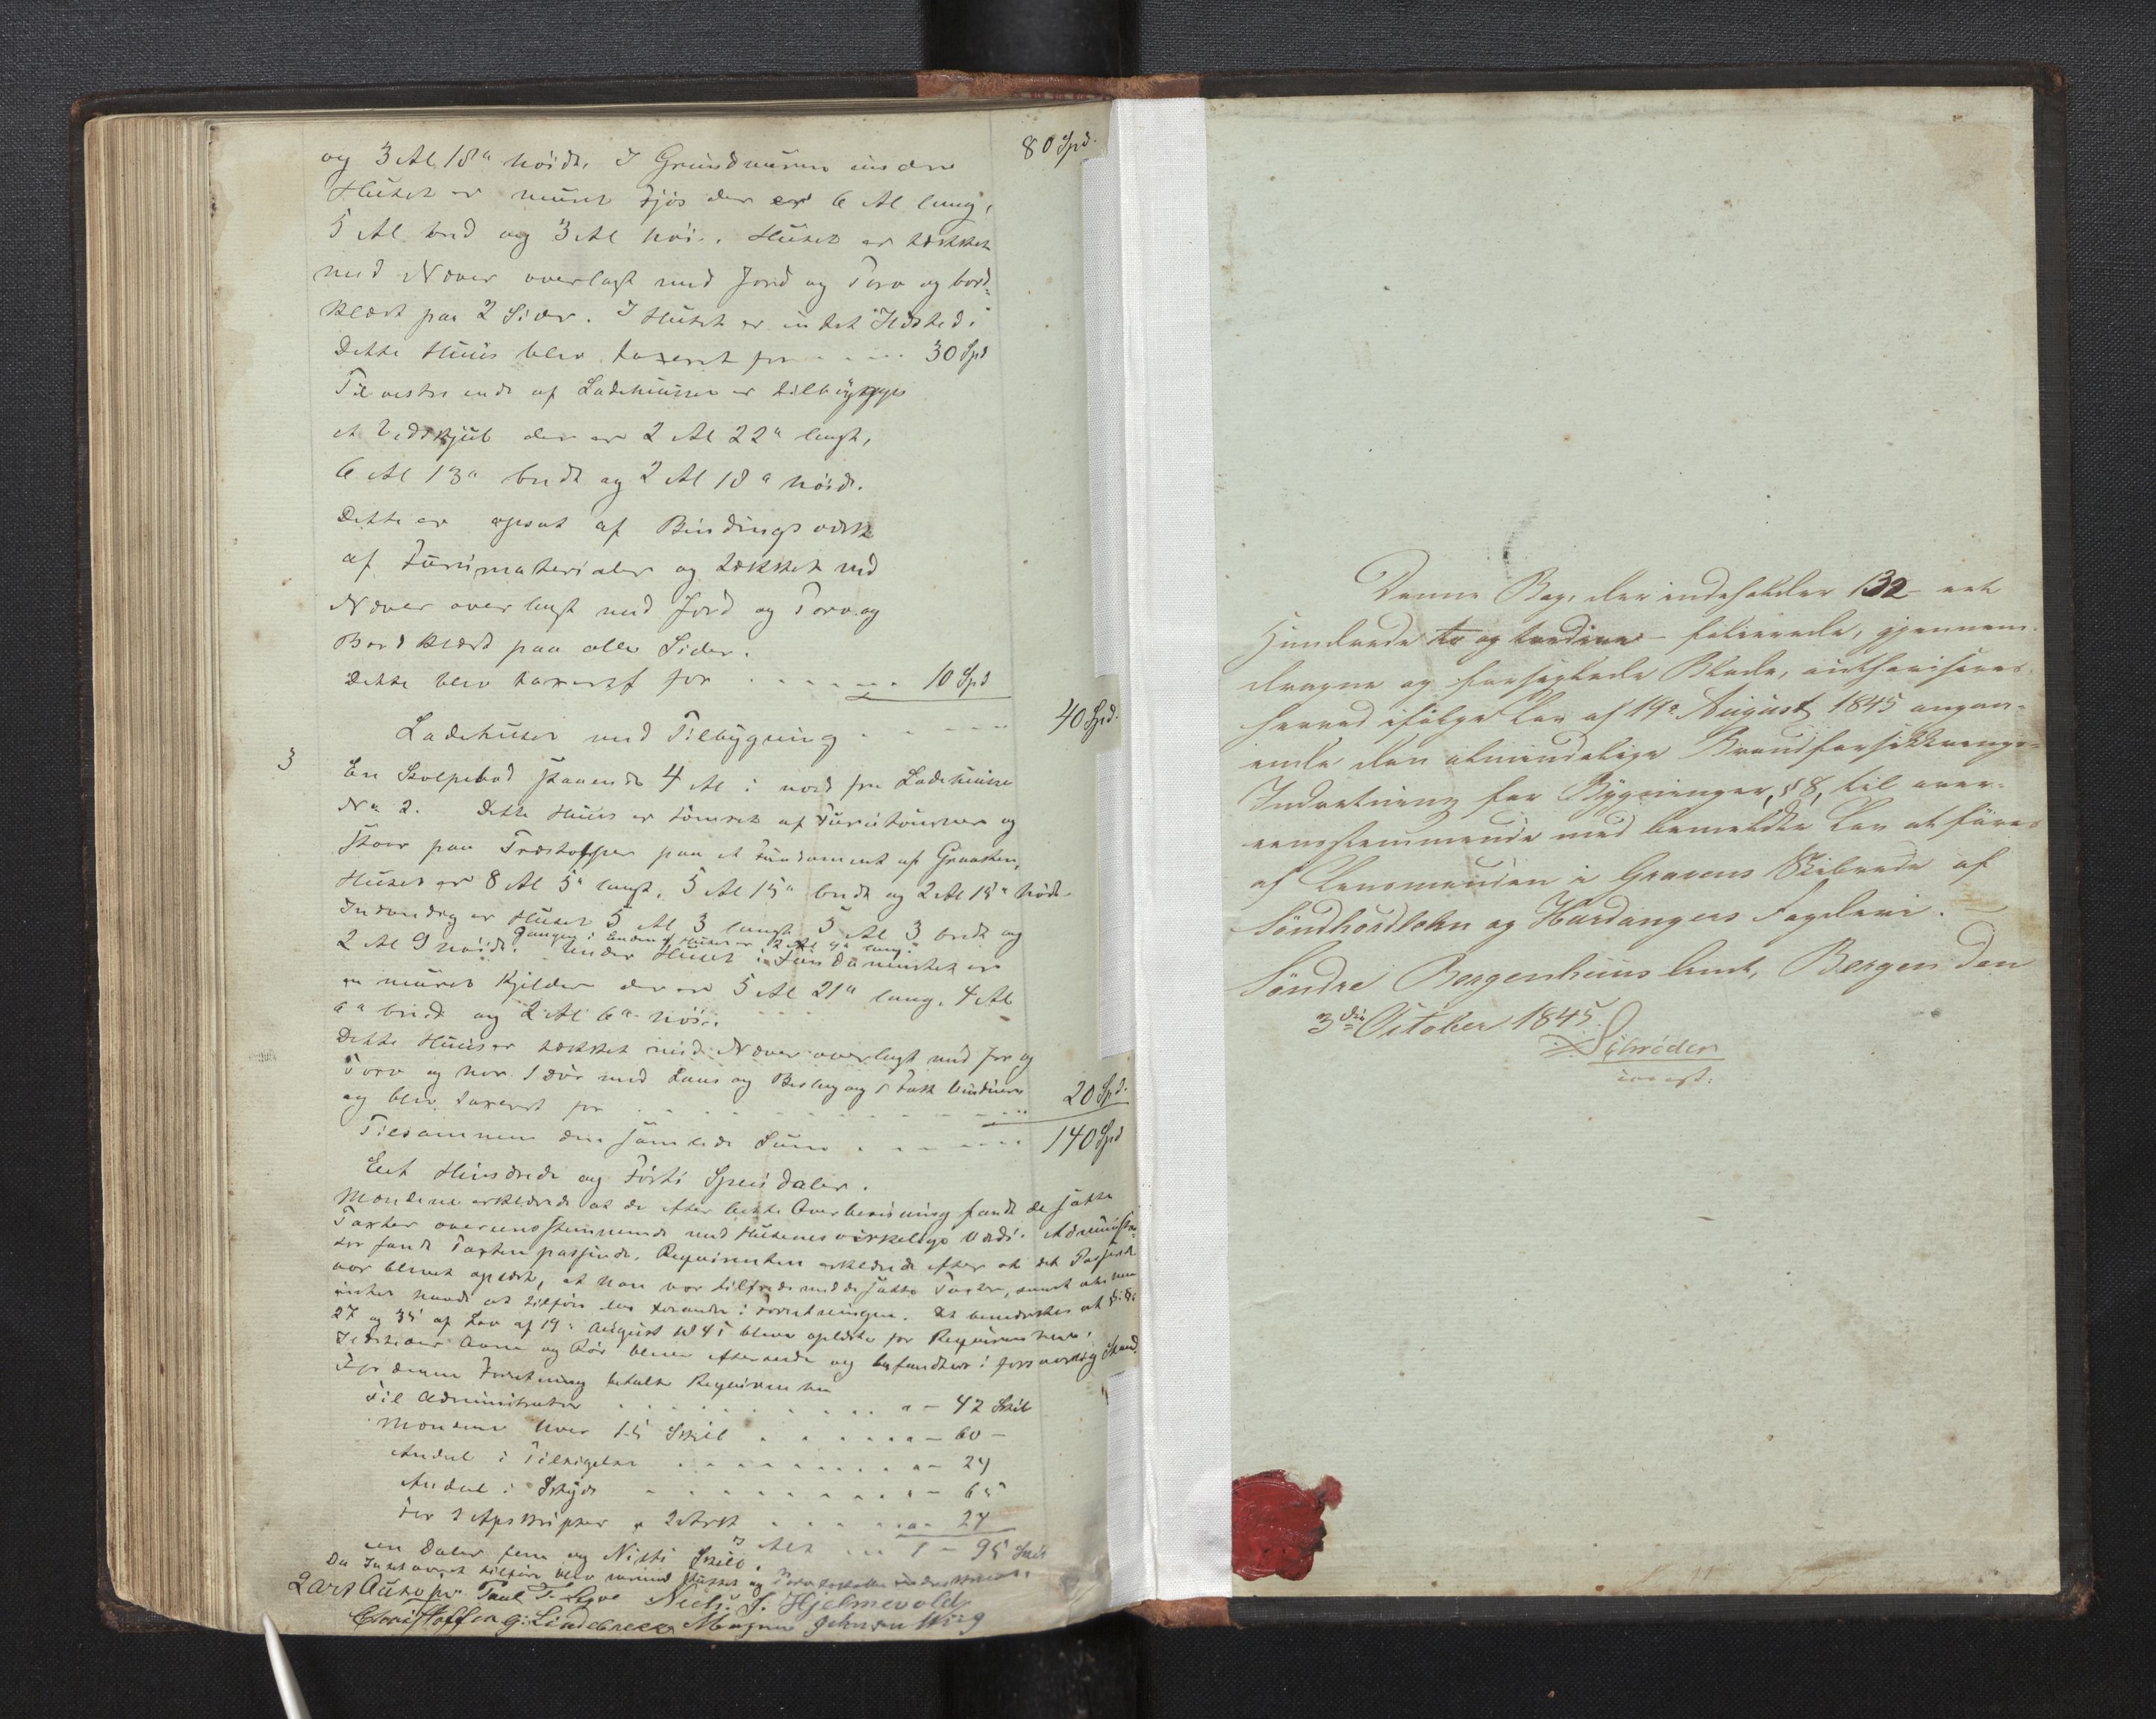 80 Spd.
og 3 Al 18" höidt. I Grundmuren under
Huset er muret Fjös der er 6 Al lang,
5 Al bred og 3 Al höi. Huset er tækket
med Næver overlagt med Jord og Torv og bord-
klædt paa 2 Sider. I Huset er intet Ildsted.
Dette Huus blev taxeret for 30 Spd
Til vestre ende af Ladehuuset er tilbygges
et Vedskjul der er 2 Al 22" langt,
6 Al 13" bredt og 2 Al 18" höidt.
Dette er opsat af Bindingsværk
af Furimaterialer og tækket med
Næver overlagt med Jord og Torv og
Bordklædt paa alle Sider.
Dette blev taxeret for 10 Spd
Ladehuset med Tilbygning 40 Spd.
3 En Stolpebod staaende 4 Al i nord fra Ladehuuse
No 2. Dette Huus er tömret af Furutömmer og
staar paa Træstolper paa et Fundament af Graasten,
Huset er 8 Al 5" langt, 5 Al 15" bredt og 2 Al 15" höidt.
Indvendig er Huset 5 Al 3 langt 5 Al 3 bredt og
Gangen i Enden af Huset er 2 Al 4" lang.
2 Al 9 höidt. Under Huset i Fundamentet er
en muret Kjelder der er 5 Al 21" lang, 4 Al
6" bred og 2 Al 6" höi.
Dette Huus er tækket med Næver overlagt med Jor og
Torv og har 1 Dör med Laas og Beslag og 1 Fask Vinduer
og blev taxeret for 20 Spd.
Tilsammen den samlede Sum 140 Spd
Eet Hundrede og Förti Speisdaler.
Mændene erklærede at de efter bedste Overbeviisning fandt de satte
Taxter overeensstemmende med Husenes virkelige Værdi. Administra-
tor fandt Taxten passende. Requirenten erklærede efter at det Passerede
var blevet oplæst, at han var tilfreds med de satte Taxter, samt at han
intet havde at tilföre eller forandre i Forretningen. Det bemærkes at §§:
27 og 35 af Lov af 19: August 1845 bleve oplæste for Requirenten.
Ildsteder Ovne og Rör bleve efterseede og befandtes i forsvarlig Stand.
For denne Forretning betalte Requirenten
Til Administrator " - 42 Skil
Mændene hver 15 Skil " - 60 -
Andeel i Tilsigelse " - 24
Andeel i Skyds " - 65
For 2 Afskrifter a 2 Ark " - 24
er Alt 1 - 95 Skil
en Daler fem og Nitti Skill.
Da Intet videre tilföre blev Forretningen sluttet og
Lars Paul T. Lyve Niels S. Hjelmevold
Christoffer G: Lindebrekke Magne Johnsen Wiig
Denne Bog, der indeholder 132 - eet
Hundrede to og tredive - folierede, gjennem-
dragne og forseglede Blade, authoriseres
herved ifölge Lov af 19de August 1845 angaa-
ende den almindelige Brandforsikkrings-
Indretning for Bygninger, § 8, til over-
eensstemmende med bemeldte Lov at föres
af Lensmanden i Gravens Skibrede af
Söndhordlehn og Hardangers Fogderi.
Söndre Bergenhuus Amt, Bergen den
3die October 1845.
Schröder
const: